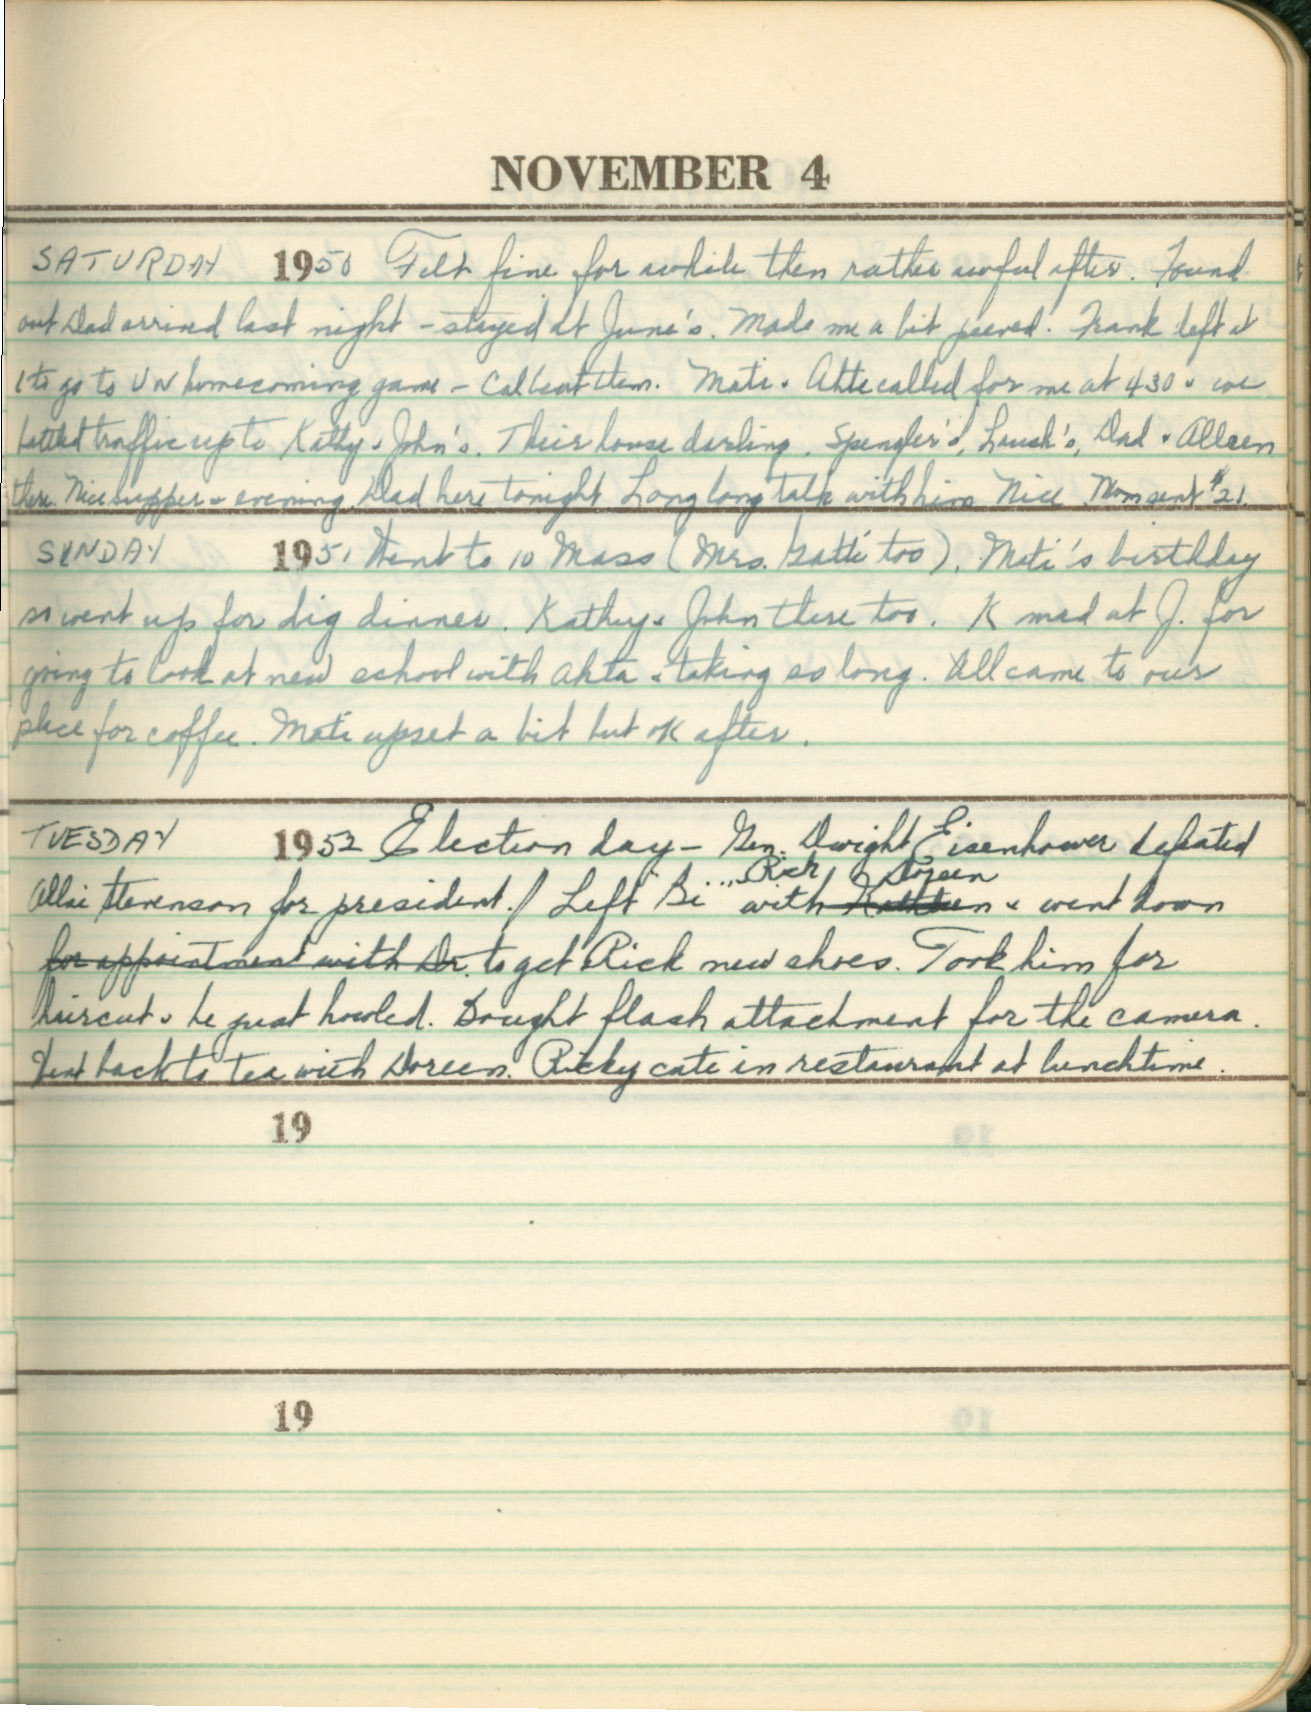 NOVEMBER 4
SATURDAY 1950 Felt fine for awhile then rather awful after. Found
out Dad arrived last night - stayed at June's. Made me a bit peeved! Frank left at
1 to go to UN homecoming game - Cal beat them. Mati & Ahte called for me at 430 & we
battled traffic up to Kathy & John's. Their house darling. Spengler's, Laush's, Dad & Alleen
there. Nice supper & evening. Dad here tonight Long long talk with him Nice. Mom sent $21.
SUNDAY 1951 Went to 10 Mass (Mrs. Gatti too). Mati's birthday
so went up for big dinner. Kathy & John there too. K mad at J. for
going to look at new school with Ahta & taking so long. All came to our
place for coffee. Mati upset a bit but OK after.
TUESDAY 1952 Election day - Gen. Dwight Eisenhower defeated
Rick Doreen
Allai Stevenson for president! Left with & went down
for appointment with Dr. to get Rick new shoes. Took him for
haircut & he just howled. Bought flash attachment for the camera.
Went back to tea with Doreen. Ricky cute in restaurant at lunchtime.
19
19